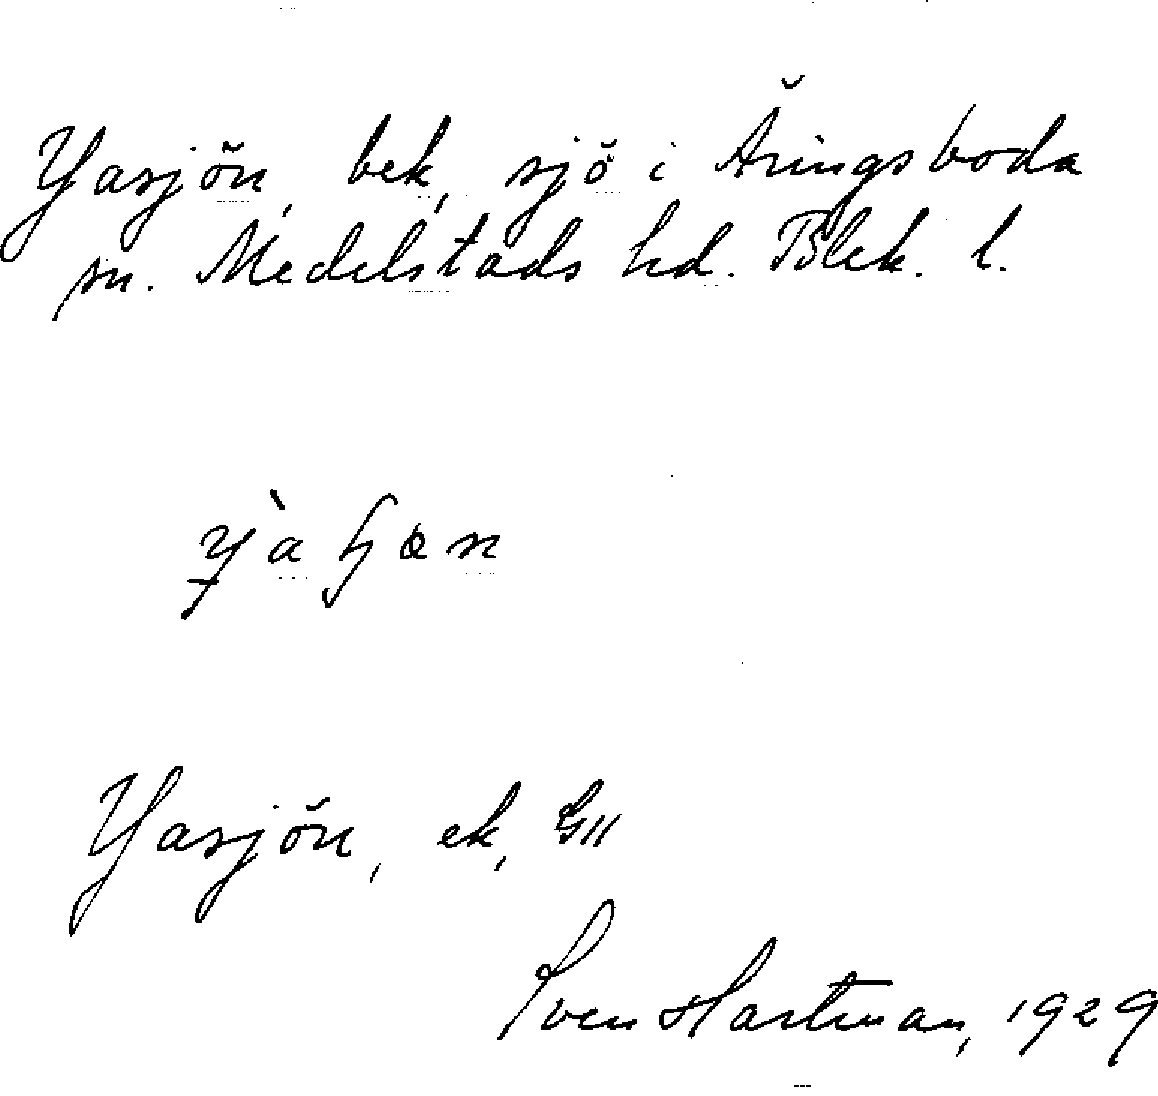 Yasjön, bek, sjö i Åringsboda
sn. Medelstads hd. Blek. l.
Yasjön, ek, G11
Sven Hartman, 1929